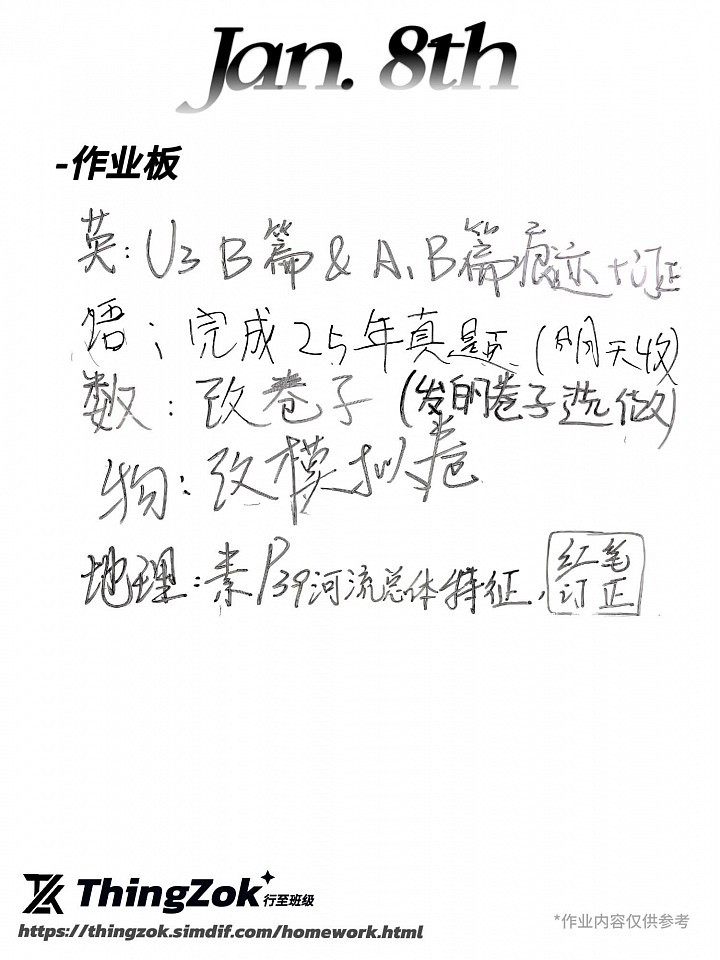 Jan. 8th
-作业板
英: U3 B篇 & A、B篇痕迹+订正
语: 完成25年真题 (明天收)
数: 改卷子 (发的卷子选做)
物: 改模拟卷
地理: 素P39河流总体特征、红笔订正
ThingZok 行至班级
https://thingzok.simdif.com/homework.html
*作业内容仅供参考